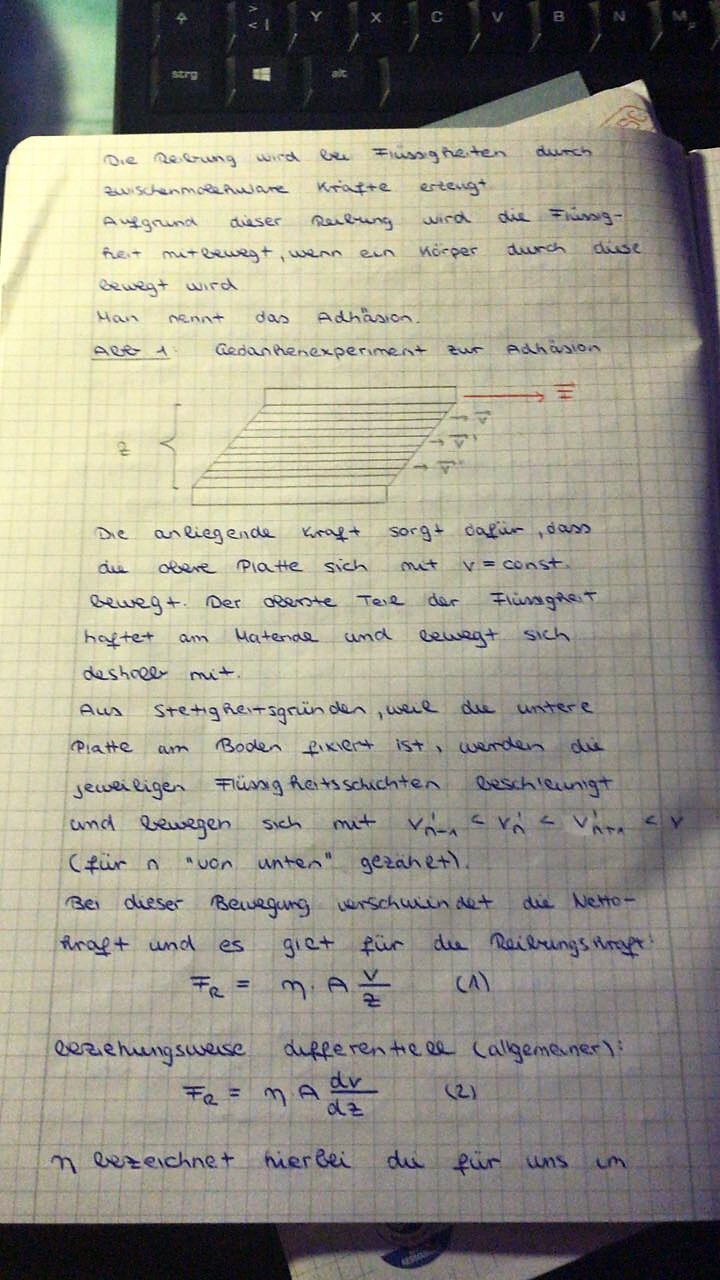 Y X C V B N M
strg alt
Die Reibung wird bei Flüssigkeiten durch
zwischenmolekulare Kräfte erzeugt
Aufgrund dieser Reibung wird die Flüssig-
keit mitbewegt, wenn ein Körper durch diese
bewegt wird
Man nennt das Adhäsion.
Abb 1: Gedankenexperiment zur Adhäsion
F
v
z
v'
v''
Die anliegende Kraft sorgt dafür, dass
die obere Platte sich mit v = const.
bewegt. Der oberste Teil der Flüssigkeit
haftet am Materiale und bewegt sich
deshalb mit.
Aus Stetigkeitsgründen, weil die untere
Platte am Boden fixiert ist, werden die
jeweiligen Flüssigkeitsschichten beschleunigt
und bewegen sich mit v'n-1 < v'n < v'n+1 < v
(für n "von unten" gezählt).
Bei dieser Bewegung verschwindet die Netto-
kraft und es gilt für die Reibungskraft:
F_R = η · A v/z (1)
beziehungsweise differentiell (allgemeiner):
F_R = η A dv/dz (2)
η bezeichnet hierbei die für uns im